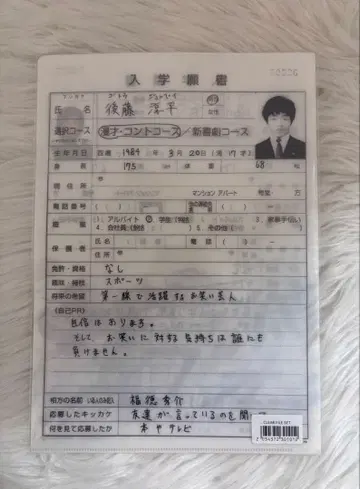 入学願書
氏名 後藤 淳平
選択コース 漫才・コントコース / 新喜劇コース
生年月日 西暦 1984 年 3月 20日 (満 17才)
身長 175 体重 68 kg
現住所 〒
マンション アパート 号室 方
電話番号
職業 1. アルバイト ② 学生 3. 家事手伝い
4. 会社員 5. その他
保護者 氏名 電話
住所 〒
免許・資格 なし
趣味・特技 スポーツ
将来の希望 第一線で活躍するお笑い芸人
《自己PR》
自信はあります。
そして、お笑いに対する気持ちは誰にも
負けません。
相方の名前 福徳秀介
応募したキッカケ 友達が言っているのを聞いて
何を見て応募したか 本やテレビ
CLEARFILE SET